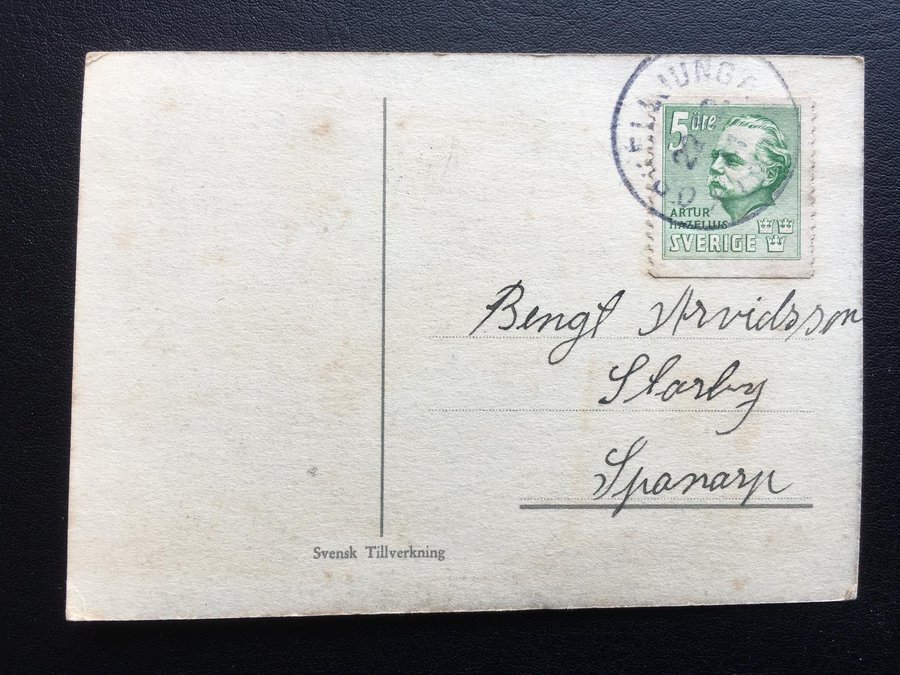 5 öre
ARTUR
HAZELIUS
SVERIGE
Bengt Arvidsson
Starby
Spanarp
Svensk Tillverkning